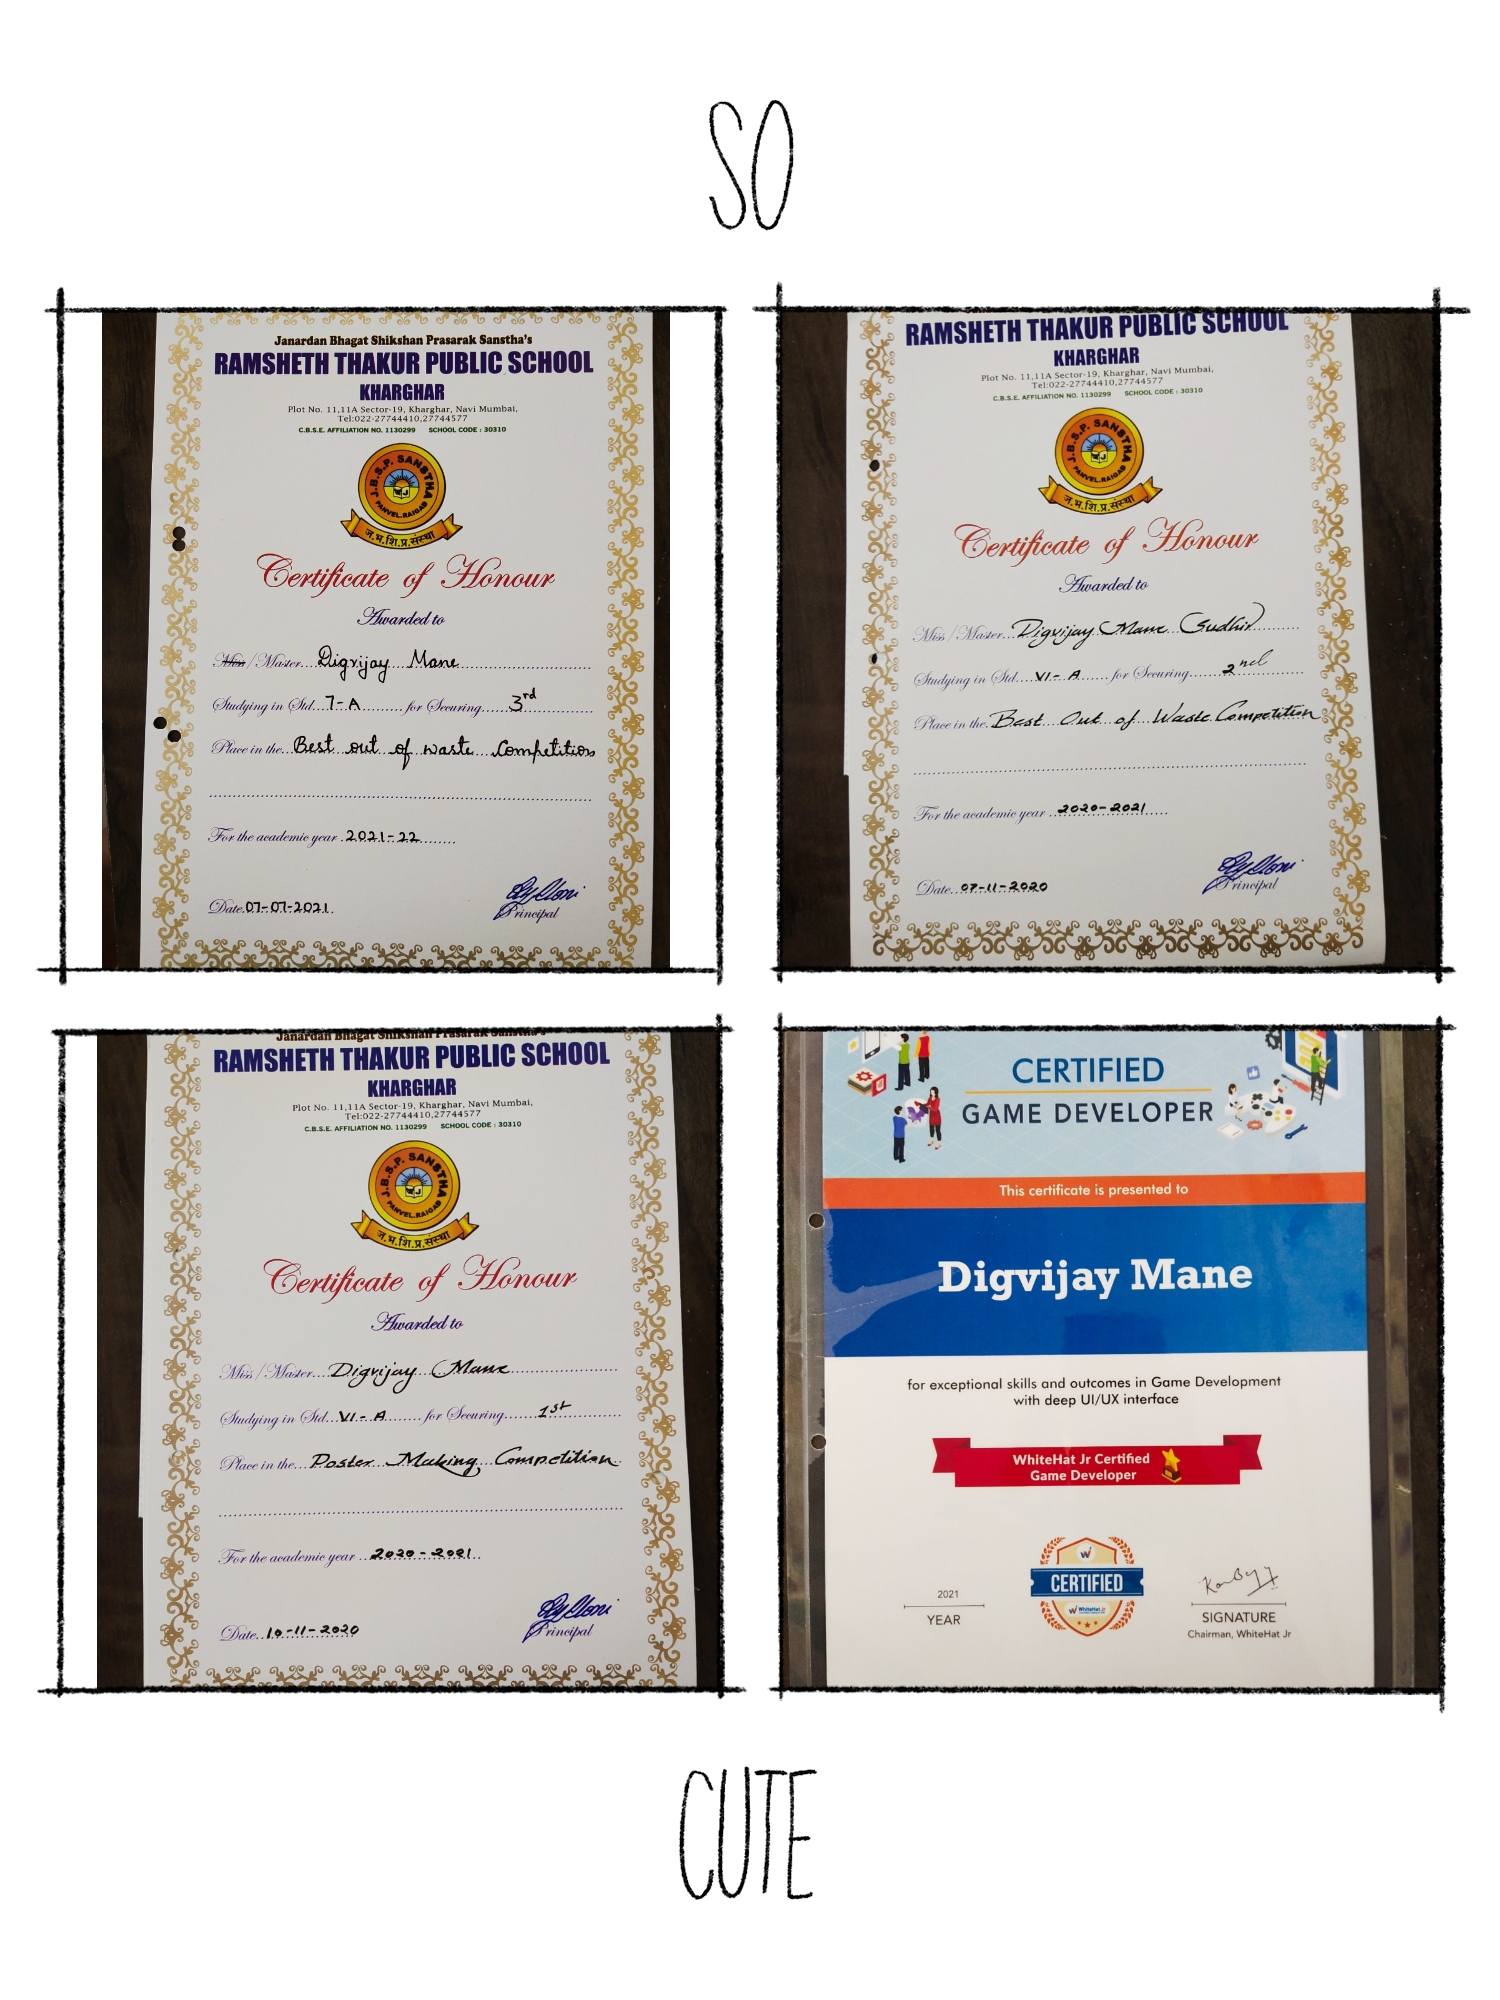 SO
Janardan Bhagat Shikshan Prasarak Sanstha's
RAMSHETH THAKUR PUBLIC SCHOOL
KHARGHAR
Plot No. 11,11A Sector-19, Kharghar, Navi Mumbai,
Tel:022-27744410,27744577
C.B.S.E. AFFILIATION NO. 1130299 SCHOOL CODE : 30310
J.B.S.P. SANSTHA
PANVEL.RAIGAD
ज.भ.शि.प्र.संस्था
Certificate of Honour
Awarded to
Miss/Master Digvijay Mane
Studying in Std. 7-A for Securing 3rd
Place in the Best out of waste Competition
For the academic year 2021-22
Date 07-07-2021
Principal
RAMSHETH THAKUR PUBLIC SCHOOL
KHARGHAR
Plot No. 11,11A Sector-19, Kharghar, Navi Mumbai,
Tel:022-27744410,27744577
C.B.S.E. AFFILIATION NO. 1130299 SCHOOL CODE : 30310
J.B.S.P. SANSTHA
PANVEL.RAIGAD
ज.भ.शि.प्र.संस्था
Certificate of Honour
Awarded to
Miss/Master Digvijay Mane Sudhir
Studying in Std. VI-A for Securing 2nd
Place in the Best Out of Waste Competition
For the academic year 2020-2021
Date 07-11-2020
Principal
Janardan Bhagat Shikshan Prasarak Sanstha's
RAMSHETH THAKUR PUBLIC SCHOOL
KHARGHAR
Plot No. 11,11A Sector-19, Kharghar, Navi Mumbai,
Tel:022-27744410,27744577
C.B.S.E. AFFILIATION NO. 1130299 SCHOOL CODE : 30310
J.B.S.P. SANSTHA
PANVEL.RAIGAD
ज.भ.शि.प्र.संस्था
Certificate of Honour
Awarded to
Miss/Master Digvijay Mane
Studying in Std. VI-A for Securing 1st
Place in the Poster Making Competition
For the academic year 2020-2021
Date 10-11-2020
Principal
CERTIFIED
GAME DEVELOPER
This certificate is presented to
Digvijay Mane
for exceptional skills and outcomes in Game Development
with deep UI/UX interface
WhiteHat Jr Certified
Game Developer
W
CERTIFIED
WhiteHat Jr
2021
YEAR
SIGNATURE
Chairman, WhiteHat Jr
CUTE